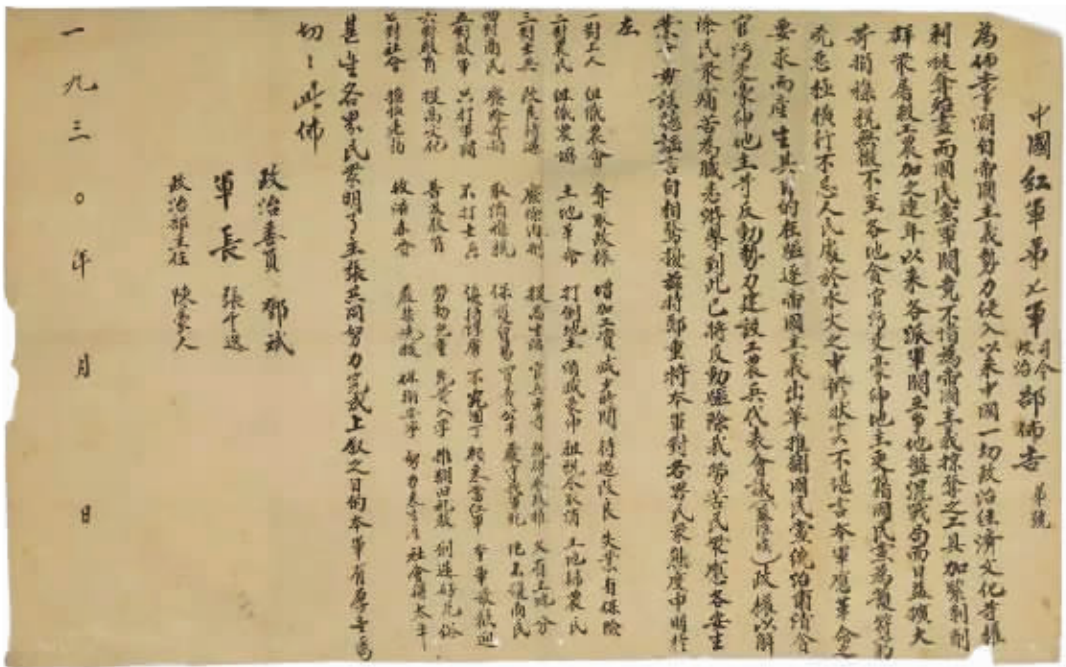 中國紅軍第七軍司令政治部佈告 第 號
為佈告事溯自帝國主義勢力侵入以來中國一切政治經濟文化等權
利被奪殆盡而國民黨軍閥竟不惜為帝國主義掠奪之工具加緊剝削
群眾屠殺工農加之連年以來各派軍閥互爭地盤混戰局面日益擴大
苛捐穅稅無微不至各地貪官污吏豪紳地主更藉國民黨為護符窮
兇惡極橫行不忌人民處於水火之中慘狀實不堪言本軍應革命之
要求而產生其目的在驅逐帝國主義出華推翻國民黨統治肅清貪
官污吏豪紳地主等反動勢力建設工農兵代表會議(蘇維埃)政權以解
除民眾痛苦為職志游擊到此已將反動驅除我勞苦民眾應各安生
業 毋誤聽謠言自相驚擾茲特鄭重將本軍對各界民眾態度申明於
左
一對工人 組織農會 奪取政權 增加工資 減少時間 待遇改良 失業有保險
二對農民 組織農協 土地革命 打倒地主 消滅豪紳 租稅全取消 土地歸農民
三對士兵 改良待遇 廢除肉刑 提高生活 官兵平等 又有土地分
四對商民 廢除苛捐 取消雜稅 保護貿易 買賣公平 嚴守我軍紀
五對敵軍 只打軍閥 不打士兵 優待俘虜
六對教育 提高文化 普及教育 免費入學 推翻舊禮教 創造好風俗
七對社會 救濟赤貧 保衛安寧 努力來生產 社會得太平
甚望各界民眾明了主張共同努力完成上敘之目的本軍有厚望焉
切切此佈
政治委員 鄧斌
軍長 張雲逸
政治部主任 陳豪人
一九三〇年 月 日